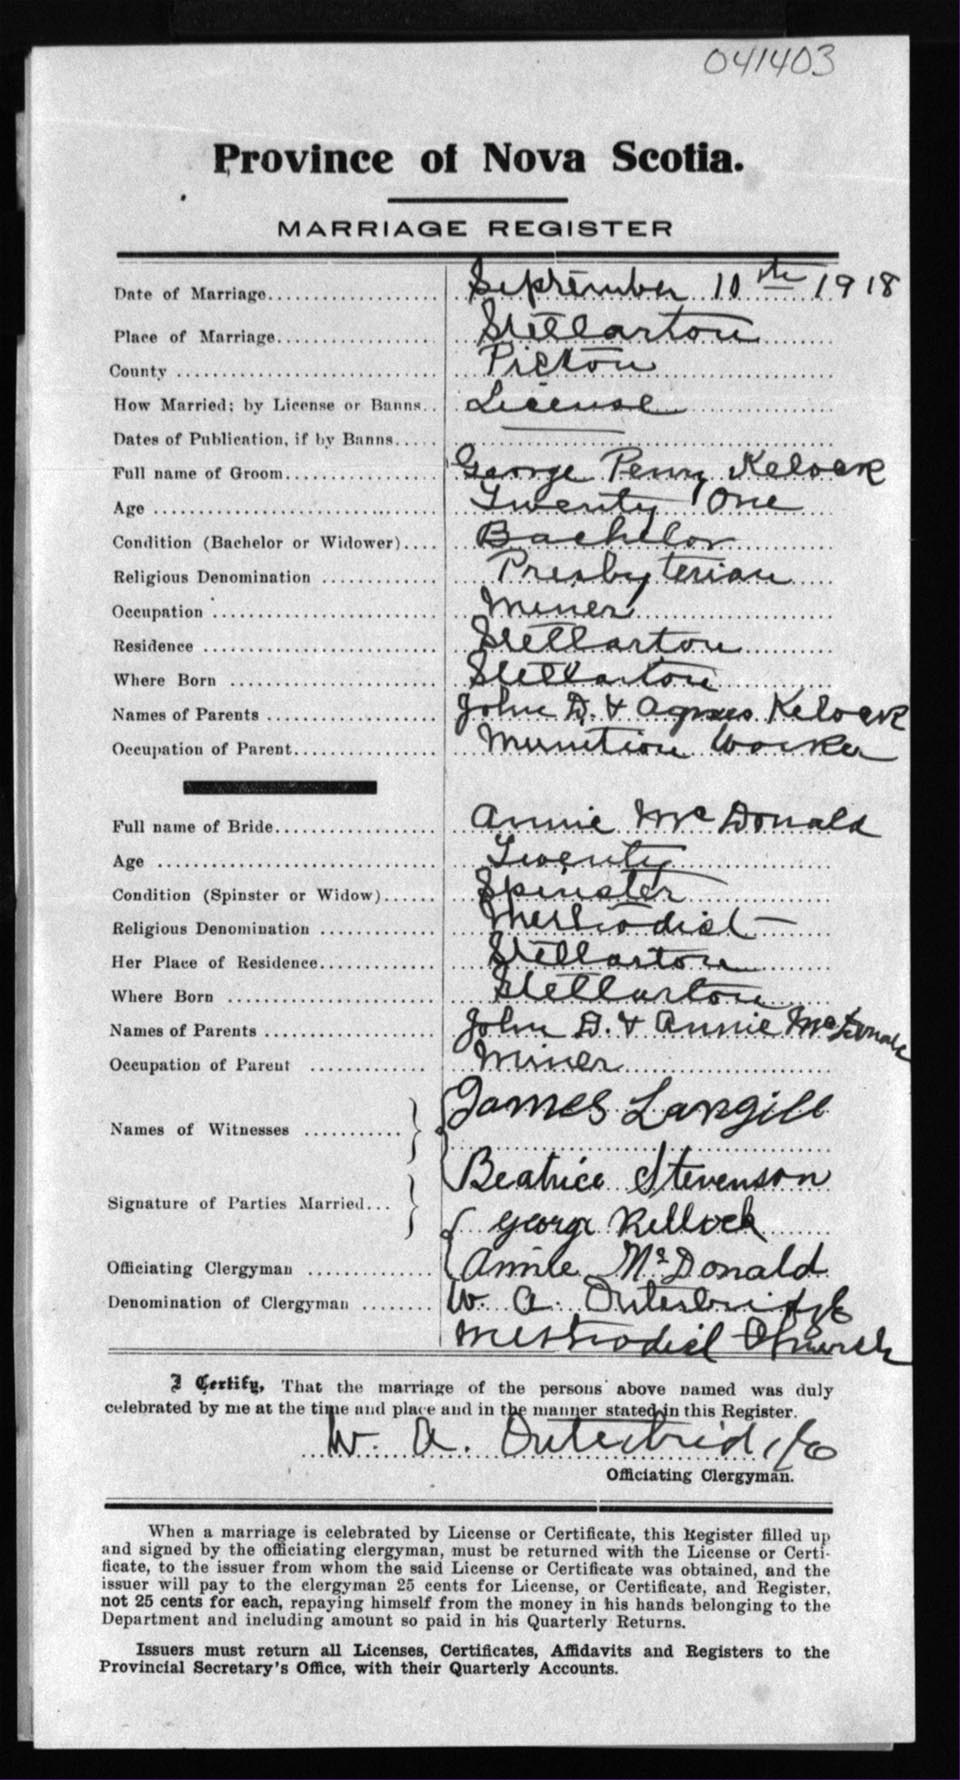 041403
Province of Nova Scotia.
MARRIAGE REGISTER
Date of Marriage September 10th 1918
Place of Marriage Stellarton
County Pictou
How Married; by License or Banns License
Dates of Publication, if by Banns
Full name of Groom George Penny Kelock
Age Twenty One
Condition (Bachelor or Widower) Bachelor
Religious Denomination Presbyterian
Occupation Miner
Residence Stellarton
Where Born Stellarton
Names of Parents John D. & Agnes Kelock
Occupation of Parent Munition Worker
Full name of Bride Annie McDonald
Age Twenty
Condition (Spinster or Widow) Spinster
Religious Denomination Methodist
Her Place of Residence Stellarton
Where Born Stellarton
Names of Parents John D. & Annie McDonald
Occupation of Parent Miner
Names of Witnesses James Langill
Beatrice Stevenson
Signature of Parties Married George Kellock
Annie McDonald
Officiating Clergyman W. A. Outerbridge
Denomination of Clergyman Methodist Church
I Certify, That the marriage of the persons above named was duly
celebrated by me at the time and place and in the manner stated in this Register.
W. A. Outerbridge
Officiating Clergyman.
When a marriage is celebrated by License or Certificate, this Register filled up
and signed by the officiating clergyman, must be returned with the License or Certi-
ficate, to the issuer from whom the said License or Certificate was obtained, and the
issuer will pay to the clergyman 25 cents for License, or Certificate, and Register,
not 25 cents for each, repaying himself from the money in his hands belonging to the
Department and including amount so paid in his Quarterly Returns.
Issuers must return all Licenses, Certificates, Affidavits and Registers to the
Provincial Secretary's Office, with their Quarterly Accounts.